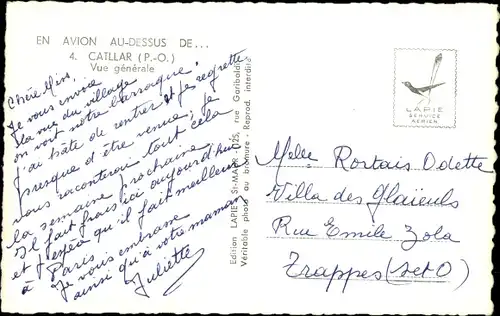 EN AVION AU-DESSUS DE...
4. CATLLAR (P.-O.)
Vue générale
Chère Miss,
Je vous envoie
la vue du village
on voit notre barraque!
j'ai hâte de rentrer et je regrette
presque d'être venue; je
vous raconterai tout cela
la semaine prochaine,
Il fait frais ici aujourd'hui
et j'espère qu'il fait meilleur
à Paris
Je vous embrasse
ainsi qu'à votre maman
Juliette
Edition LAPIE, St-MAUR - 025, rue Garibaldi
Véritable photo au bromure - Reprod. interdite
LAPIE
SERVICE
AERIEN
Melle Rortais Odette
Villa des Glaïeuls
Rue Emile Zola
Trappes (S et O)